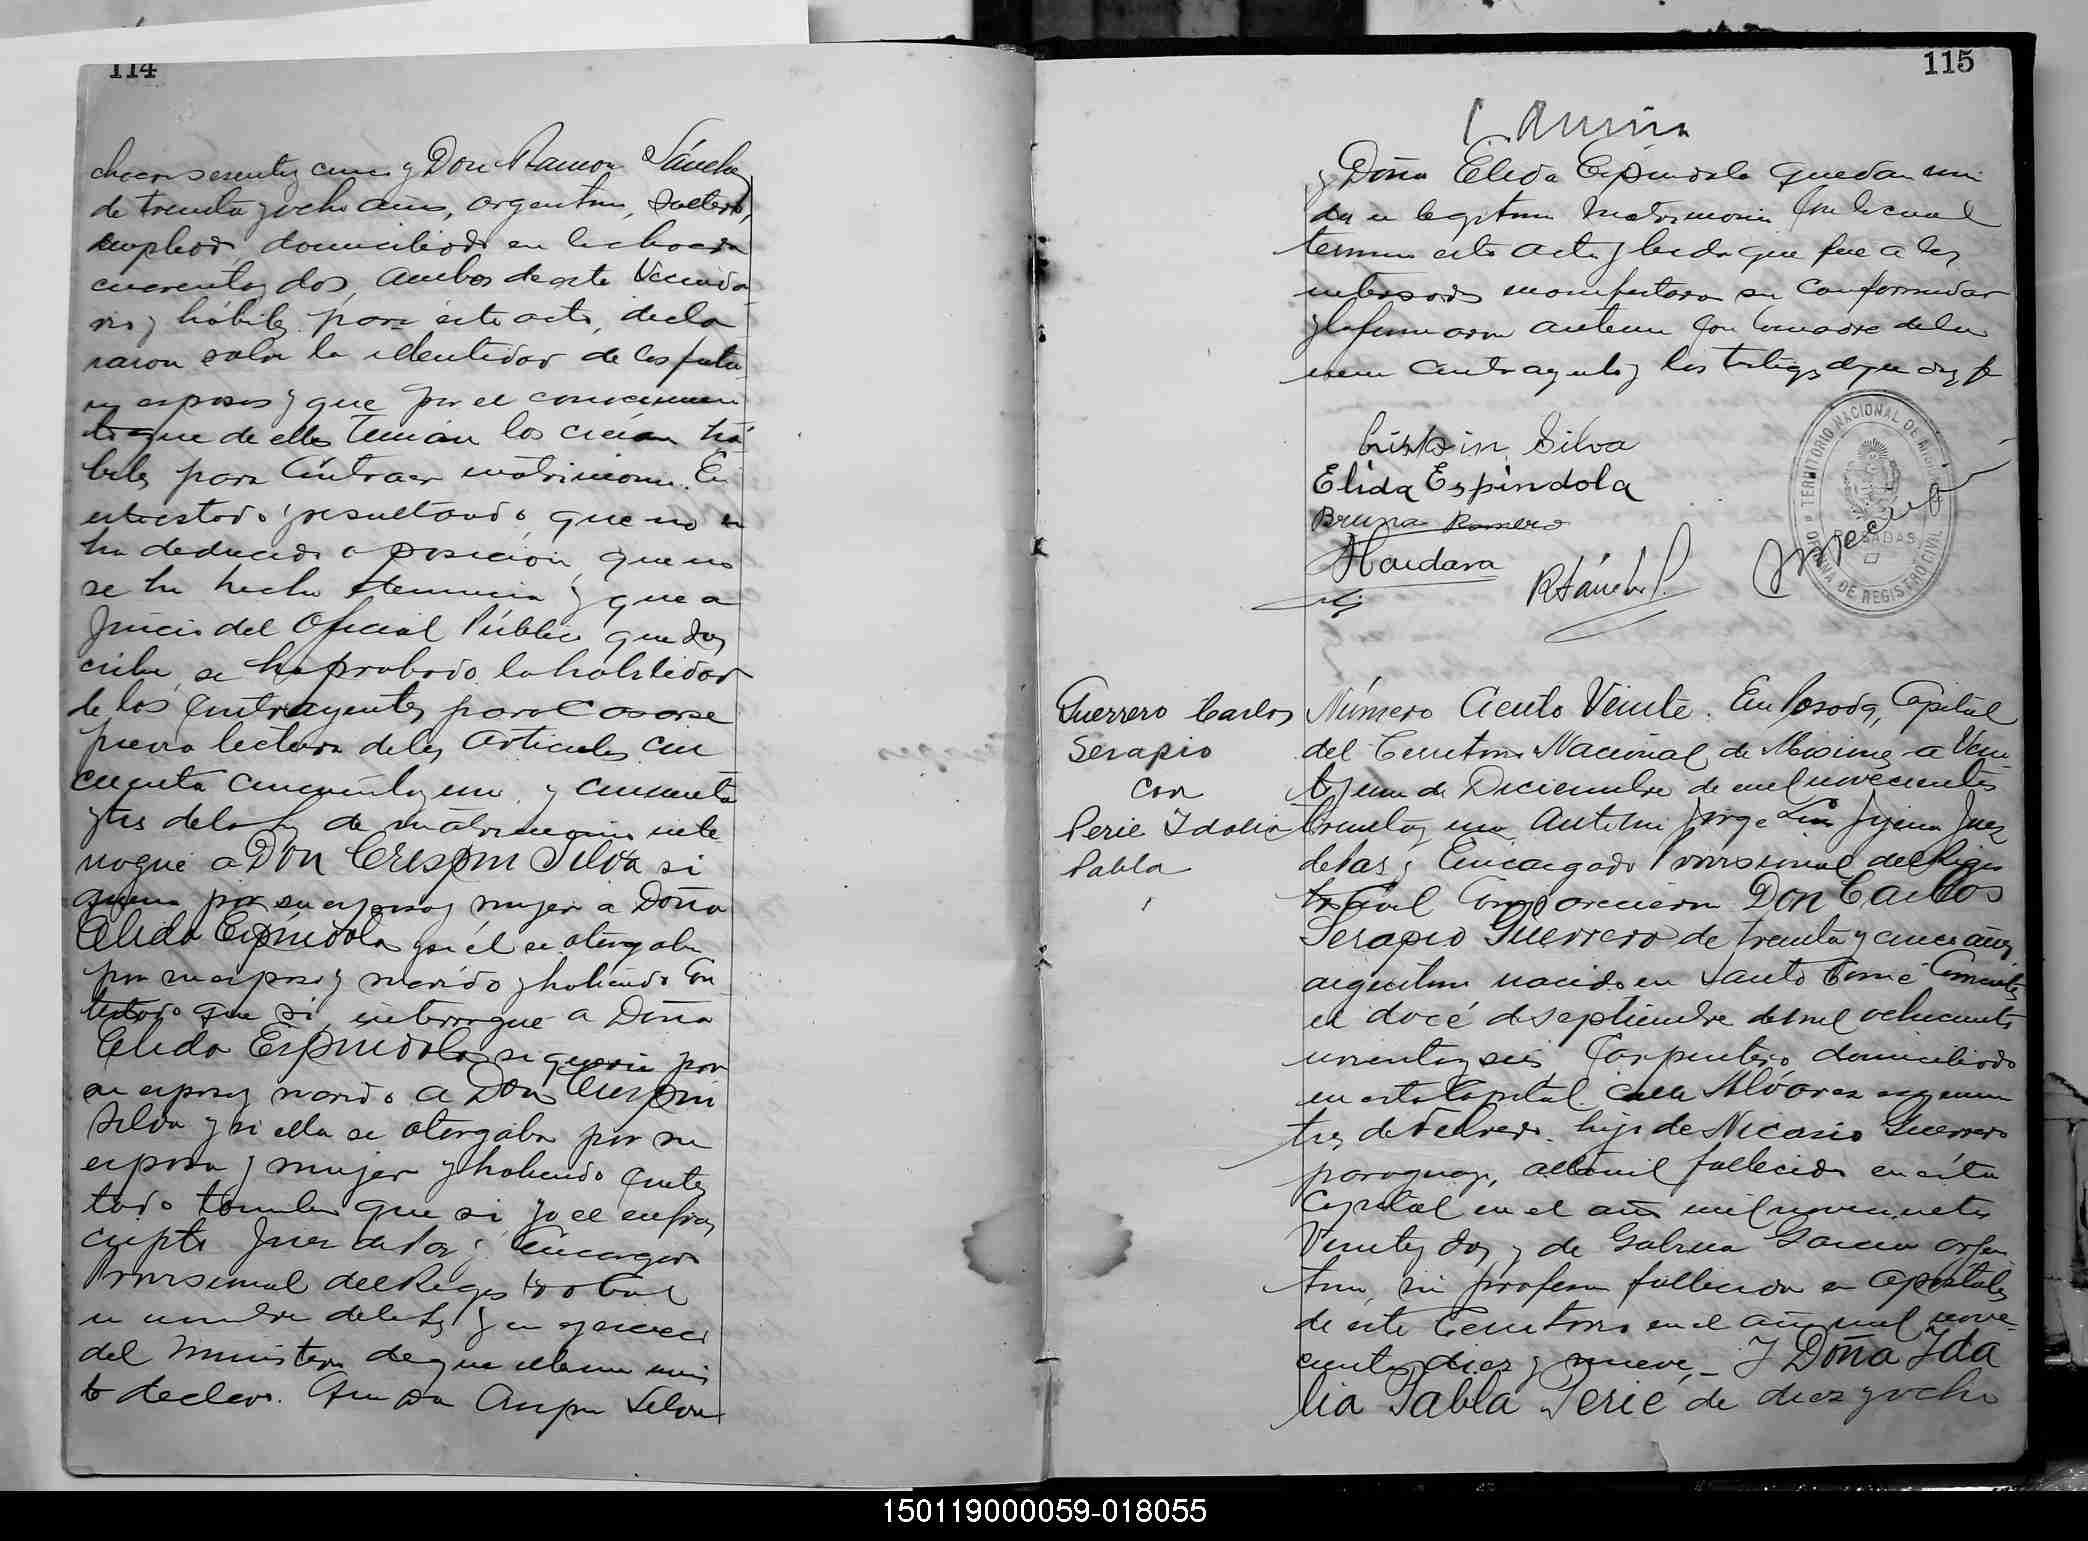 114
chaco sesenta y cinco y Don Ramon Sánchez
de treinta y ocho años, argentino, soltero,
empleado, domiciliado en la chacra
cuarenta y dos, ambos de este Vecinda
rio y hábiles para este acto, decla
raron sobre la identidad de los futu
ros esposos y que por el conocimien
to que de ellos tenian los creian há
biles para contraer matrimonio. En
este estado y resultando, que no se
ha deducido oposición, que no
se ha hecho denuncia y que a
Juicio del Oficial Público que sus
cribe, se ha probado la habilidad
de los contrayentes para Casarse
previa lectura de los Articulos cin
cuenta cincuenta y uno y cincuenta
y tres de la Ley de matrimonio inte
rrogué a Don Crespin Silva si
queria por su esposa y mujer a Doña
Elida Espindola y si él se otorgaba
por su esposo y marido y habiendo Con
testado que si, interrogué a Doña
Elida Espindola si queria por
su esposo y marido a Don Crespin
Silva y si ella se otorgaba por su
esposa y mujer y habiendo contes
tado tambien que si, yo el infras
cripto Juez de Paz y Encargado
Provisional del Registro Civil
en nombre de la Ley y en ejercicio
del Ministerio de que me
to declaro. Que Don Crespin Silva
115
y Doña Elida Espindola quedan uni
dos en legitimo Matrimonio Con lo cual
termino este acto y leida que fue a los
interesados manifestaron su Conformidad
y la firmaron
contrayente y los testigos de que doy fe
Crispin Silva
Elida Espindola
Bruna Romero
R Sánchez
TERRITORIO NACIONAL DE MISIONES
POSADAS
OFICINA DE REGISTRO CIVIL
Guerrero Carlos
Serapio
con
Perié Idalia
Pabla
Número Ciento Veinte. En Posadas, Capital
del Territorio Nacional de Misiones a Vein
te y uno de Diciembre de mil novecientos
treinta y uno Ante mi Jorge Luis Juez
de Paz y Encargado Provisional del Regis
tro Civil Comparecieron Don Carlos
Serapio Guerrero de treinta y cinco años
argentino nacido en Santo Tomé Corrientes
el doce de septiembre de mil ochocientos
noventa y seis Carpintero domiciliado
en esta Capital calle Alvarez esquina
tres de Febrero. hijo de Nicasio Guerrero
paraguayo, albañil fallecido en esta
Capital en el año mil novecientos
Veinte y dos y de Gabina Garcia argen
tina, sin profesion fallecida en Apóstoles
de este Territorio en el año mil nove-
cientos diez y nueve, – Y Doña Ida
lia Pabla Perié de diez y ocho
150119000059-018055